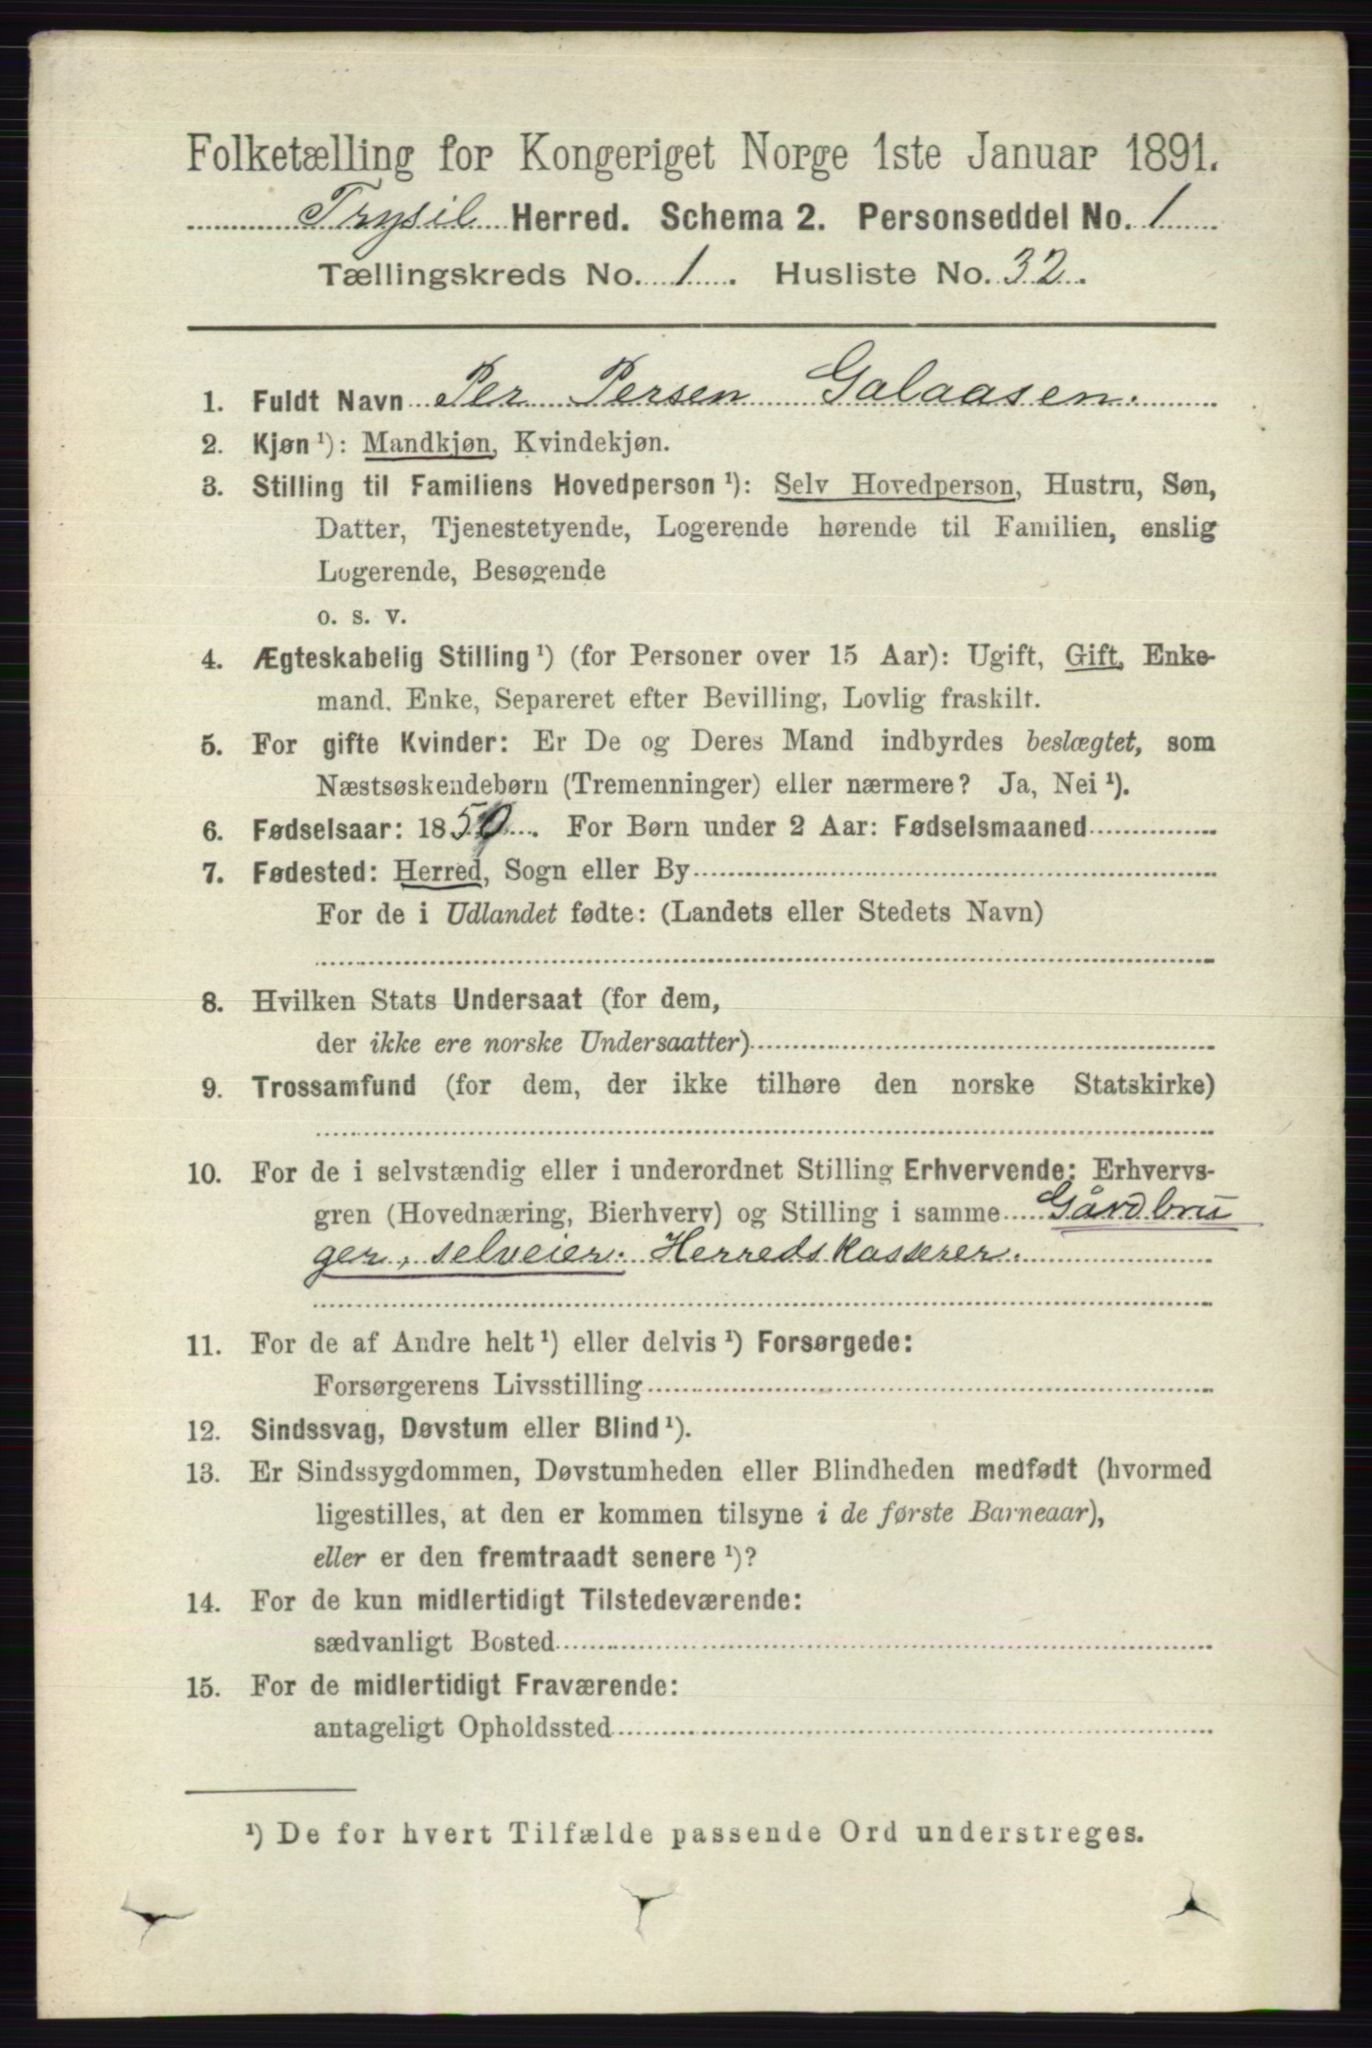 Folketælling for Kongeriget Norge 1ste Januar 1891.
Trysil Herred. Schema 2. Personseddel No. 1
Tællingskreds No. 1. Husliste No. 32.
1. Fuldt Navn Per Persen Galaasen.
2. Kjøn ¹): Mandkjøn, Kvindekjøn.
3. Stilling til Familiens Hovedperson ¹): Selv Hovedperson, Hustru, Søn,
Datter, Tjenestetyende, Logerende hørende til Familien, enslig
Logerende, Besøgende
o. s. v.
4. Ægteskabelig Stilling ¹) (for Personer over 15 Aar): Ugift, Gift, Enke-
mand. Enke, Separeret efter Bevilling, Lovlig fraskilt.
5. For gifte Kvinder: Er De og Deres Mand indbyrdes beslægtet, som
Næstsøskendebørn (Tremenninger) eller nærmere? Ja, Nei ¹).
6. Fødselsaar: 1859. For Børn under 2 Aar: Fødselsmaaned
7. Fødested: Herred, Sogn eller By
For de i Udlandet fødte: (Landets eller Stedets Navn)
8. Hvilken Stats Undersaat (for dem,
der ikke ere norske Undersaatter)
9. Trossamfund (for dem, der ikke tilhøre den norske Statskirke)
10. For de i selvstændig eller i underordnet Stilling Erhvervende: Erhvervs-
gren (Hovednæring, Bierhverv) og Stilling i samme Gårdbru
ger, selveier. Herredskasserer.
11. For de af Andre helt ¹) eller delvis ¹) Forsørgede:
Forsørgerens Livsstilling
12. Sindssvag, Døvstum eller Blind ¹).
13. Er Sindssygdommen, Døvstumheden eller Blindheden medfødt (hvormed
ligestilles, at den er kommen tilsyne i de første Barneaar),
eller er den fremtraadt senere ¹)?
14. For de kun midlertidigt Tilstedeværende:
sædvanligt Bosted
15. For de midlertidigt Fraværende:
antageligt Opholdssted
¹) De for hvert Tilfælde passende Ord understreges.